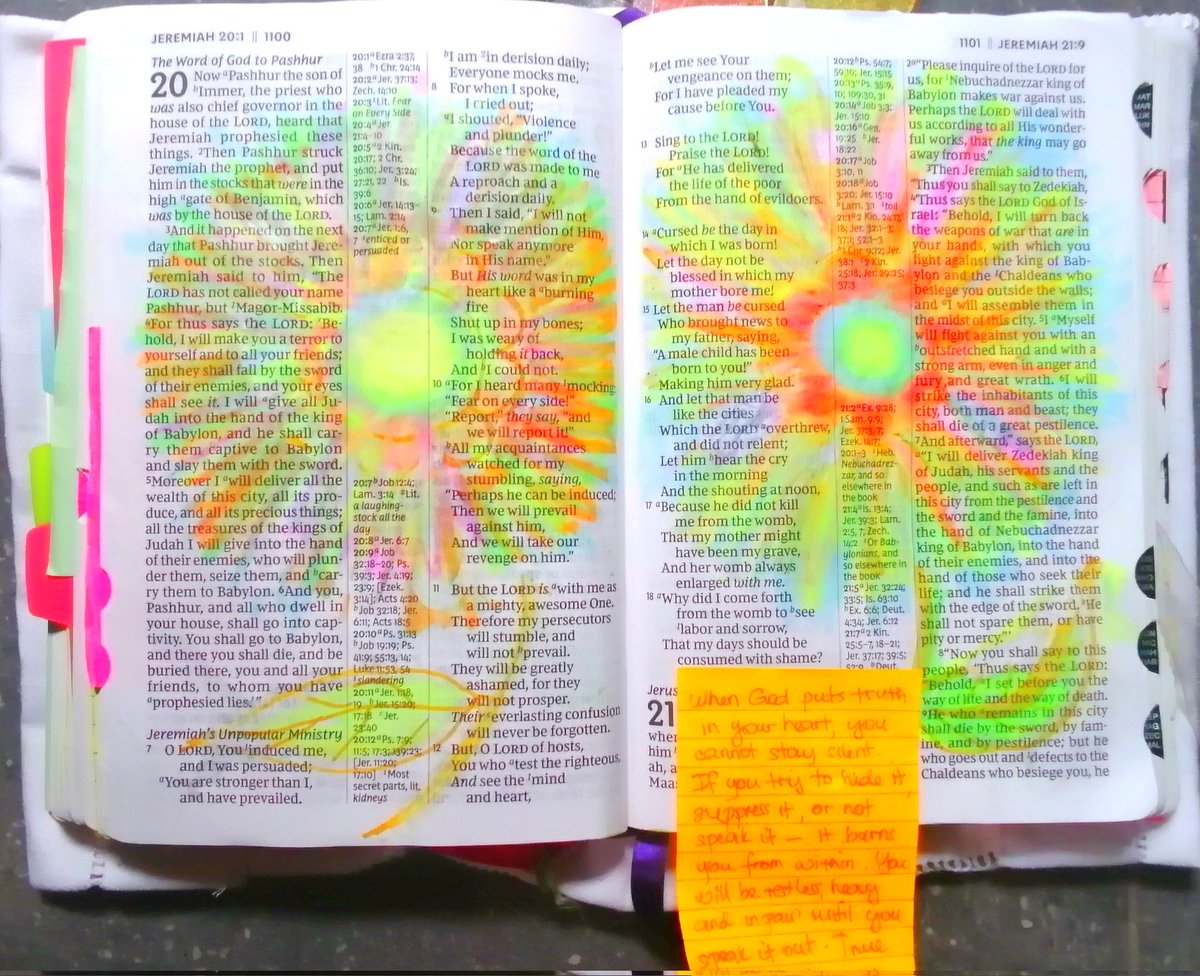 JEREMIAH 20:1 || 1100
The Word of God to Pashhur
20 Now ᵃPashhur the son of
ᵇImmer, the priest who
was also chief governor in the
house of the LORD, heard that
Jeremiah prophesied these
things. ²Then Pashhur struck
Jeremiah the prophet, and put
him in the stocks that were in the
high ᵃgate of Benjamin, which
was by the house of the LORD.
³And it happened on the next
day that Pashhur brought Jere-
miah out of the stocks. Then
Jeremiah said to him, “The
LORD has not called your name
Pashhur, but ¹Magor-Missabib.
⁴For thus says the LORD: ‘Be-
hold, I will make you a terror to
yourself and to all your friends;
and they shall fall by the sword
of their enemies, and your eyes
shall see it. I will ᵃgive all Ju-
dah into the hand of the king
of Babylon, and he shall car-
ry them captive to Babylon
and slay them with the sword.
⁵Moreover I ᵃwill deliver all the
wealth of this city, all its pro-
duce, and all its precious things;
all the treasures of the kings of
Judah I will give into the hand
of their enemies, who will plun-
der them, seize them, and ᵇcar-
ry them to Babylon. ⁶And you,
Pashhur, and all who dwell in
your house, shall go into cap-
tivity. You shall go to Babylon,
and there you shall die, and be
buried there, you and all your
friends, to whom you have
ᵃprophesied lies.’ ”
Jeremiah’s Unpopular Ministry
7 O LORD, You ¹induced me,
and I was persuaded;
ᵃYou are stronger than I,
and have prevailed.
20:1 ᵃ Ezra 2:37,
38 ᵇ 1 Chr. 24:14
20:2 ᵃ Jer. 37:13;
Zech. 14:10
20:3 ¹ Lit. Fear
on Every Side
20:4 ᵃ Jer.
21:4–10
20:5 ᵃ 2 Kin.
20:17; 2 Chr.
36:10; Jer. 3:24;
27:21, 22 ᵇ Is.
39:6
20:6 ᵃ Jer. 14:13–
15; Lam. 2:14
20:7 ᵃ Jer. 1:6,
7 ¹ enticed or
persuaded
20:7 ᵇ Job 12:4;
Lam. 3:14 ² Lit.
a laughing-
stock all the
day
20:8 ᵃ Jer. 6:7
20:9 ᵃ Job
32:18–20; Ps.
39:3; Jer. 4:19;
23:9; [Ezek.
3:14]; Acts 4:20
ᵇ Job 32:18; Jer.
6:11; Acts 18:5
20:10 ᵃ Ps. 31:13
ᵇ Job 19:19; Ps.
41:9; 55:13, 14;
Luke 11:53, 54
¹ slandering
20:11 ᵃ Jer. 1:18,
19 ᵇ Jer. 15:20;
17:18 ᶜ Jer.
23:40
20:12 ᵃ Ps. 7:9;
11:5; 17:3; 139:23;
[Jer. 11:20;
17:10] ¹ Most
secret parts, lit.
kidneys
ᵇI am ²in derision daily;
Everyone mocks me.
8 For when I spoke,
I cried out;
ᵃI shouted, “Violence
and plunder!”
Because the word of the
LORD was made to me
A reproach and a
derision daily.
9 Then I said, “I will not
make mention of Him,
Nor speak anymore
in His name.”
But His word was in my
heart like a ᵃburning
fire
Shut up in my bones;
I was weary of
holding it back,
And ᵇI could not.
10 ᵃFor I heard many ¹mocking:
“Fear on every side!”
“Report,” they say, “and
we will report it!”
ᵇAll my acquaintances
watched for my
stumbling, saying,
“Perhaps he can be induced;
Then we will prevail
against him,
And we will take our
revenge on him.”
11 But the LORD is ᵃwith me as
a mighty, awesome One.
Therefore my persecutors
will stumble, and
will not ᵇprevail.
They will be greatly
ashamed, for they
will not prosper.
Their ᶜeverlasting confusion
will never be forgotten.
12 But, O LORD of hosts,
You who ᵃtest the righteous,
And see the ¹mind
and heart,
1101 || JEREMIAH 21:9
ᵇLet me see Your
vengeance on them;
For I have pleaded my
cause before You.
13 Sing to the LORD!
Praise the LORD!
For ᵃHe has delivered
the life of the poor
From the hand of evildoers.
14 ᵃCursed be the day in
which I was born!
Let the day not be
blessed in which my
mother bore me!
15 Let the man be cursed
Who brought news to
my father, saying,
“A male child has been
born to you!”
Making him very glad.
16 And let that man be
like the cities
Which the LORD ᵃoverthrew,
and did not relent;
Let him ᵇhear the cry
in the morning
And the shouting at noon,
17 ᵃBecause he did not kill
me from the womb,
That my mother might
have been my grave,
And her womb always
enlarged with me.
18 ᵃWhy did I come forth
from the womb to ᵇsee
¹labor and sorrow,
That my days should be
consumed with shame?
Jerus
21
when
him
ah, a
Maa
20:12 ᵇ Ps. 54:7;
59:10; Jer. 15:15
20:13 ᵃ Ps. 35:9,
10; 109:30, 31
20:14 ᵃ Job 3:3;
Jer. 15:10
20:16 ᵃ Gen.
19:25 ᵇ Jer.
18:22
20:17 ᵃ Job
3:10, 11
20:18 ᵃ Job
3:20; Jer. 15:10
ᵇ Lam. 3:1 ¹ toil
21:1 ᵃ 2 Kin. 24:17,
18; Jer. 32:1–3;
37:1; 52:1–3
ᵇ 1 Chr. 9:12; Jer.
38:1 ᶜ 2 Kin.
25:18; Jer. 29:25;
37:3
21:2 ᵃ Ex. 9:28;
1 Sam. 9:9;
Jer. 37:3, 7;
Ezek. 14:7;
20:1–3 ¹ Heb.
Nebuchadrez-
zar, and so
elsewhere in
the book
21:4 ᵃ Is. 13:4;
Jer. 39:3; Lam.
2:5, 7; Zech.
14:2 ¹ Or Bab-
ylonians, and
so elsewhere in
the book
21:5 ᵃ Jer. 32:24;
33:5; Is. 63:10
ᵇ Ex. 6:6; Deut.
4:34; Jer. 6:12
21:7 ᵃ 2 Kin.
25:5–7, 18–21;
Jer. 37:17; 39:5;
52:9 ᵇ Deut.
2ᵃ“Please inquire of the LORD for
us, for ¹Nebuchadnezzar king of
Babylon makes war against us.
Perhaps the LORD will deal with
us according to all His wonder-
ful works, that the king may go
away from us.”
³Then Jeremiah said to them,
“Thus you shall say to Zedekiah,
⁴‘Thus says the LORD God of Is-
rael: “Behold, I will turn back
the weapons of war that are in
your hands, with which you
fight against the king of Bab-
ylon and the ¹Chaldeans who
besiege you outside the walls;
and ᵃI will assemble them in
the midst of this city. ⁵I ᵃMyself
will fight against you with an
ᵇoutstretched hand and with a
strong arm, even in anger and
fury and great wrath. ⁶I will
strike the inhabitants of this
city, both man and beast; they
shall die of a great pestilence.
⁷And afterward,” says the LORD,
ᵃ“I will deliver Zedekiah king
of Judah, his servants and the
people, and such as are left in
this city from the pestilence and
the sword and the famine, into
the hand of Nebuchadnezzar
king of Babylon, into the hand
of their enemies, and into the
hand of those who seek their
life; and he shall strike them
with the edge of the sword. ᵇHe
shall not spare them, or have
pity or mercy.” ’
⁸“Now you shall say to this
people, ‘Thus says the LORD:
“Behold, ᵃI set before you the
way of life and the way of death.
⁹He who ᵃremains in this city
shall die by the sword, by fam-
ine, and by pestilence; but he
who goes out and ¹defects to the
Chaldeans who besiege you, he
When God puts truth
in your heart, you
cannot stay silent.
If you try to hide it
suppress it, or not
speak it — it burns
you from within. You
will be restless, heavy
and in pain until you
speak it out. True
MAT
MAR
LUK